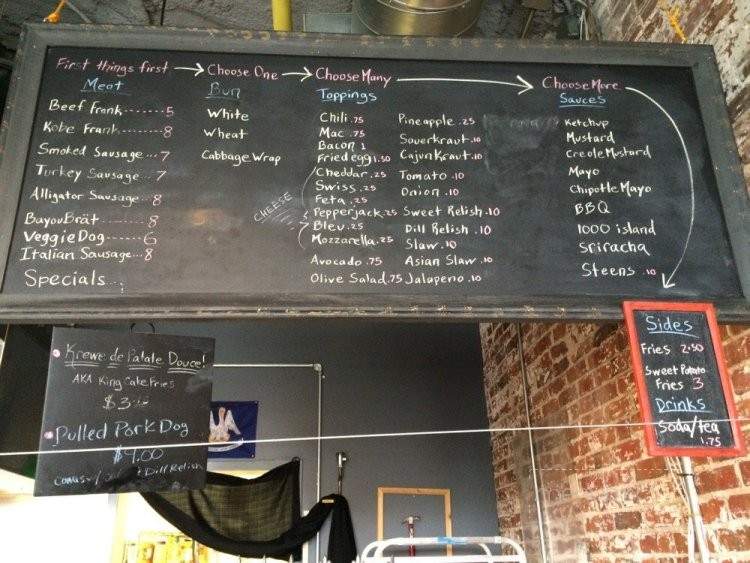 First things first → Choose One → Choose Many → Choose More
Meat
Beef Frank------5
Kobe Frank------8
Smoked Sausage...7
Turkey Sausage----7
Alligator Sausage---8
Bayou Brät-------8
Veggie Dog------6
Italian Sausage---8
Specials...
Bun
White
Wheat
Cabbage Wrap
Toppings
Chili .75
Mac .75
Bacon 1
Fried egg 1.50
CHEESE
Cheddar .25
Swiss .25
Feta .25
Pepperjack .25
Bleu .25
Mozzarella .25
Avocado .75
Olive Salad .75
Pineapple .25
Sauerkraut .10
Cajun Kraut .10
Tomato .10
Onion .10
Sweet Relish .10
Dill Relish .10
Slaw .10
Asian Slaw .10
Jalapeno .10
Sauces
Ketchup
Mustard
Creole Mustard
Mayo
Chipotle Mayo
BBQ
1000 island
Sriracha
Steens .10
Sides
Fries 2.50
Sweet Potato
Fries 3
Drinks
Soda/tea
1.75
Krewe de Patate Douce!
AKA King Cake Fries
$3
Pulled Pork Dog
$9.00
Dill Relish